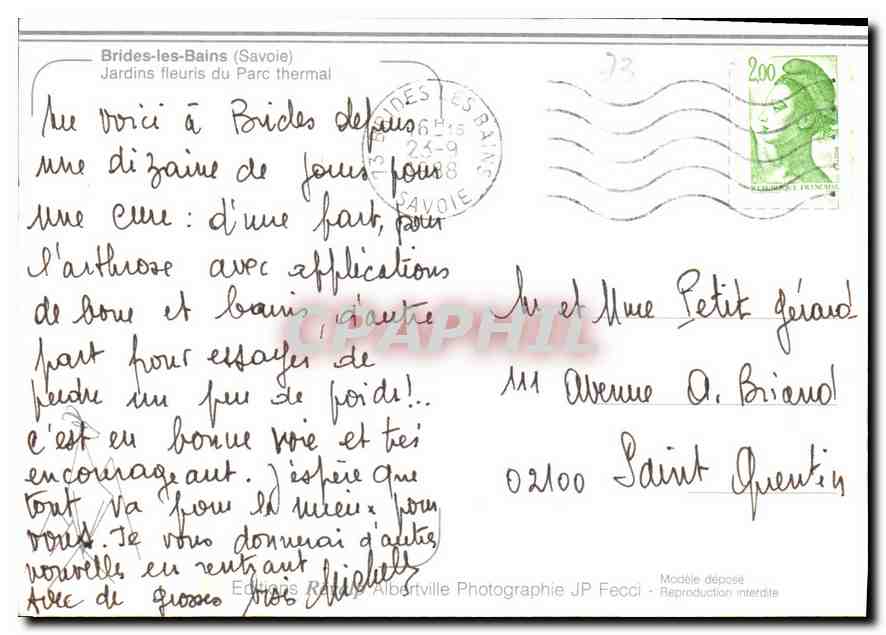 Brides-les-Bains (Savoie)
Jardins fleuris du Parc thermal
Me voici à Brides depuis
une dizaine de jours pour
une cure : d'une part, pour
l'arthrose avec applications
de boue et bains, d'autre
part pour essayer de
perdre un peu de poids !..
c'est en bonne voie et très
encourageant. J'espère que
tout va pour le mieux pour
vous. Je vous donnerai d'autres
nouvelles en rentrant
Avec de grosses bises Michelle
73 BRIDES LES BAINS
16H15
23-9
1988
SAVOIE
73
2,00
REPUBLIQUE FRANCAISE
Mr et Mme Petit Gérard
111 Avenue A. Briand
02100 Saint Quentin
CPAPHIL
Editions Albertville Photographie JP Fecci -
Modèle déposé
Reproduction interdite